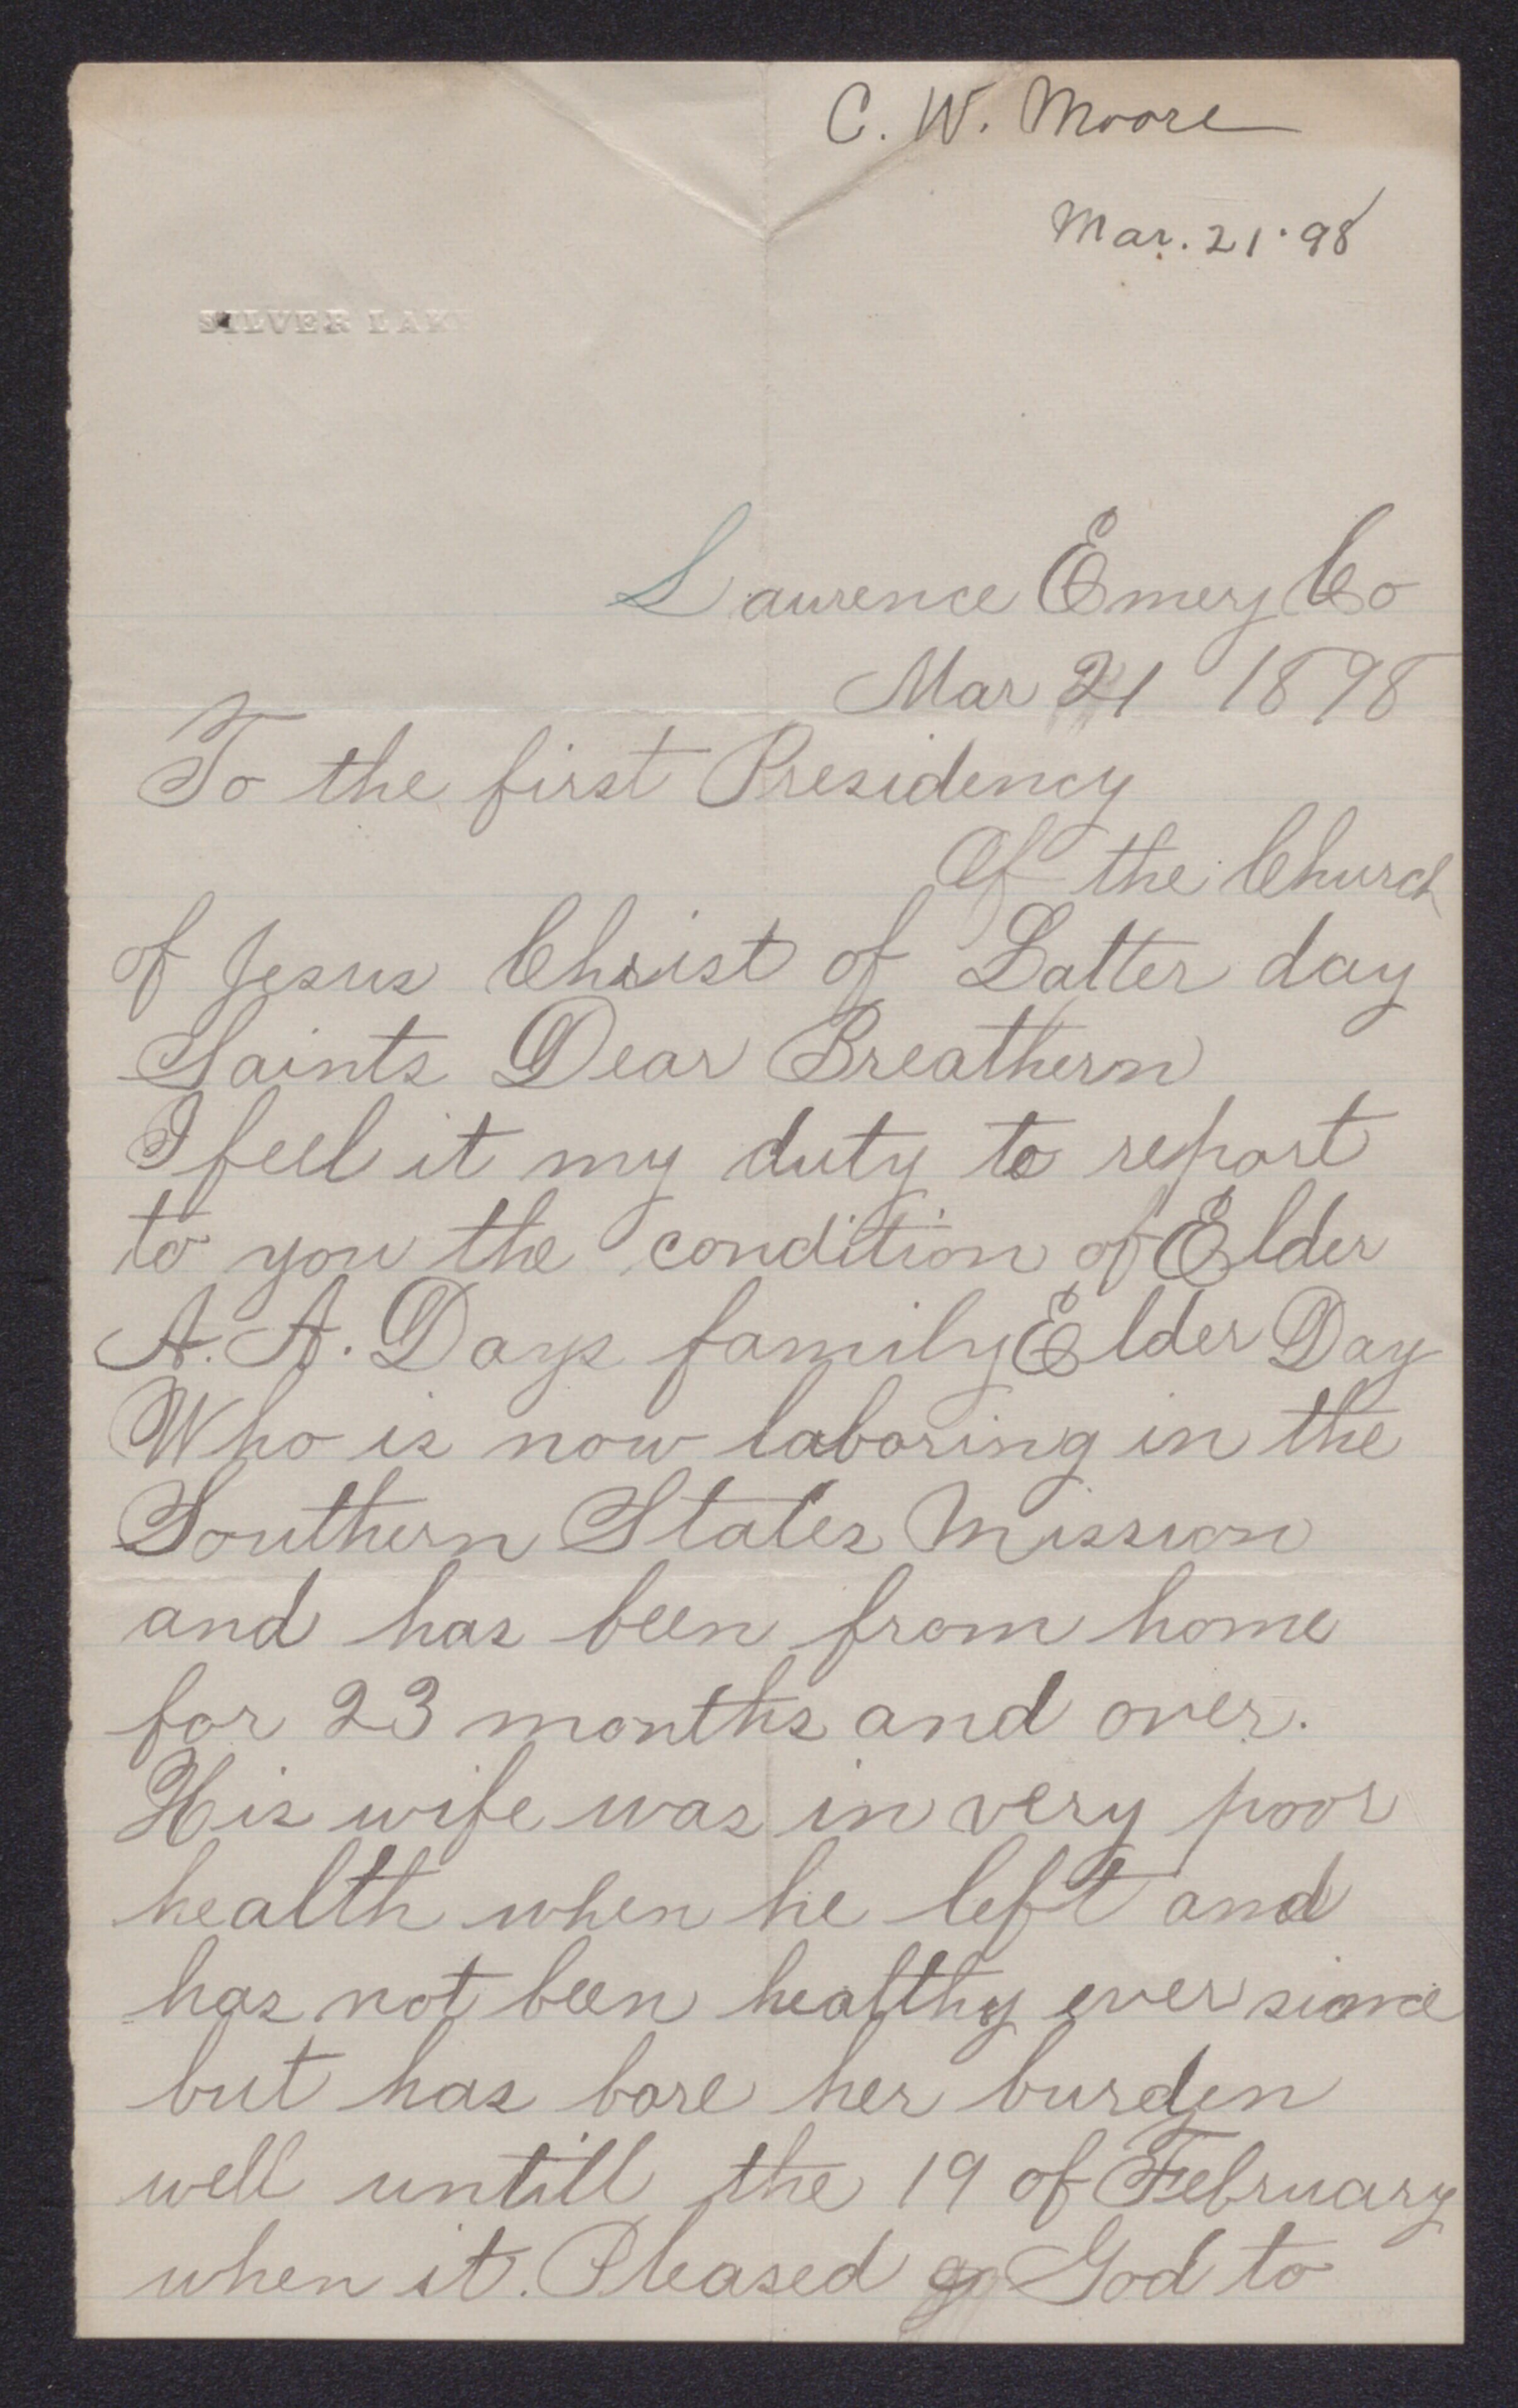 C. W. Moore
Mar. 21. 98
SILVER LAKE
Laurence Emery Co
Mar 21 1898
To the first Presidency
Of the Church
of Jesus Christ of Latter day
Saints Dear Breathern
I feel it my duty to report
to you the condition of Elder
A. A. Days family Elder Day
Who is now laboring in the
Southern States Mission
and has been from home
for 23 months and over.
His wife was in very poor
health when he left and
has not been healthy ever since
but has bore her burden
well untill the 19 of February
when it. Pleased God to